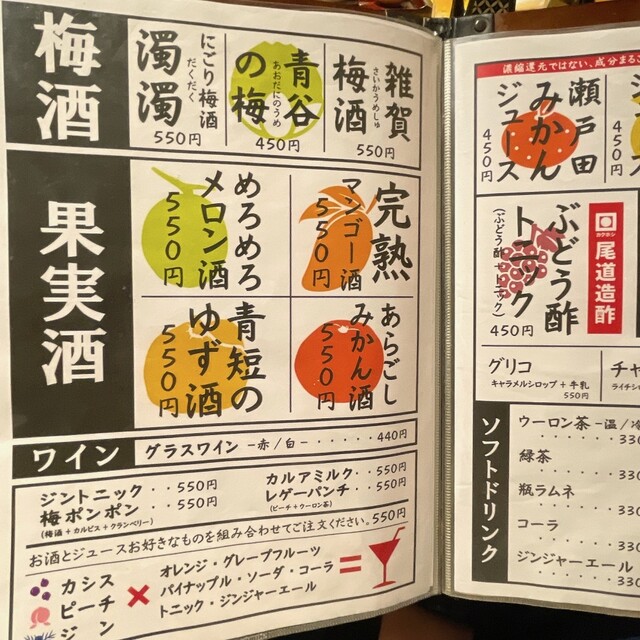 梅酒
雑賀
梅酒
さいかうめしゅ
550円
青谷
の梅
あおだにのうめ
450円
にごり梅酒
濁濁
だくだく
550円
果実酒
完熟
マンゴー酒
550円
めろめろ
メロン酒
550円
あらごし
みかん酒
550円
青短の
ゆず酒
550円
ワイン
グラスワイン -赤/白- ・・・・・440円
ジントニック・・550円
梅ポンポン・・550円
(梅酒+カルピス+クランベリー)
カルアミルク・・550円
レゲーパンチ・・550円
(ピーチ+ウーロン茶)
お酒とジュースお好きなものを組み合わせてご注文ください。550円
カシス
ピーチ
ジン
×
オレンジ・グレープフルーツ
パイナップル・ソーダ・コーラ
トニック・ジンジャーエール
=
濃縮還元ではない、成分まるご
瀬戸田
みかん
ジュース
450円
尾道造酢
カクホシ
ぶどう酢
トニック
(ぶどう酢+トニック)
450円
グリコ
キャラメルシロップ+牛乳
550円
チャ
ライチシロ
ソフトドリンク
ウーロン茶 -温/冷
330
緑茶
330
瓶ラムネ
330
コーラ
330
ジンジャーエール
330